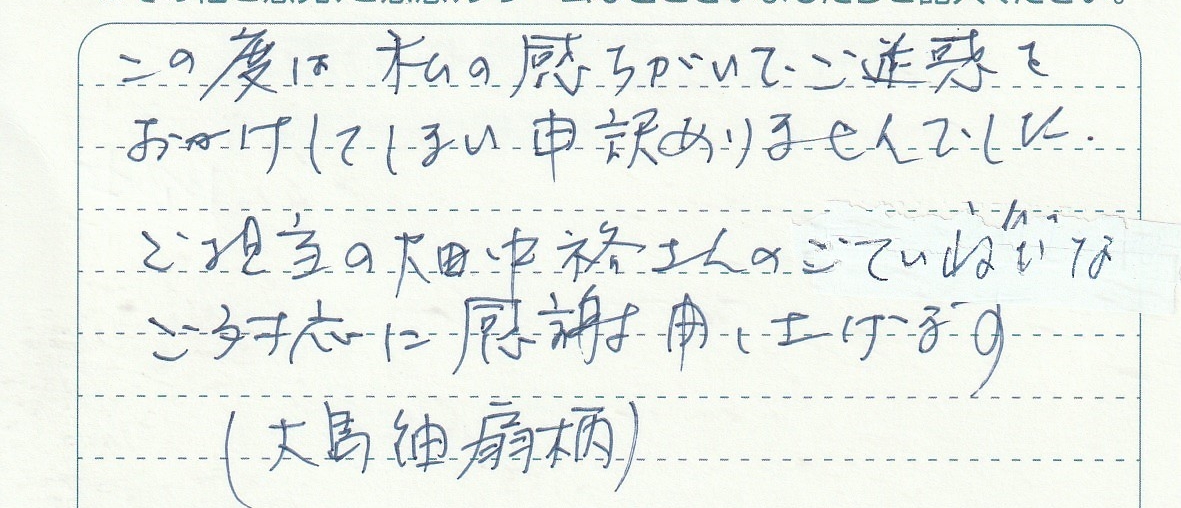 この度は私の感ちがいで、ご迷惑を
おかけしてしまい申訳ありませんでした。
ご担当の大田中裕さんのごていねいな
ご対応に感謝申し上げます。
(大島紬扇柄)